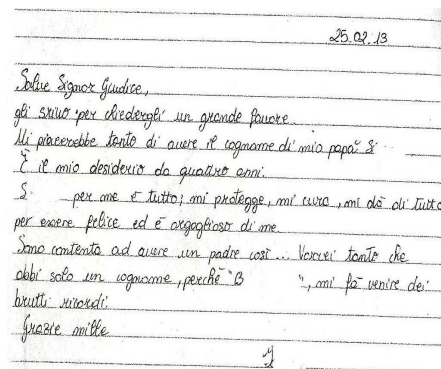 25.02.13
Salve Signor Giudice,
gli scrivo per chiedergli un grande favore.
Mi piacerebbe tanto di avere il cognome di mio papà S
È il mio desiderio da quattro anni.
S per me è tutto; mi protegge, mi cura, mi dà di tutto
per essere felice ed è orgoglioso di me.
Sono contenta ad avere un padre così... Vorrei tanto che
abbi solo un cognome, perchè "B ", mi fà venire dei
brutti ricordi.
Grazie mille